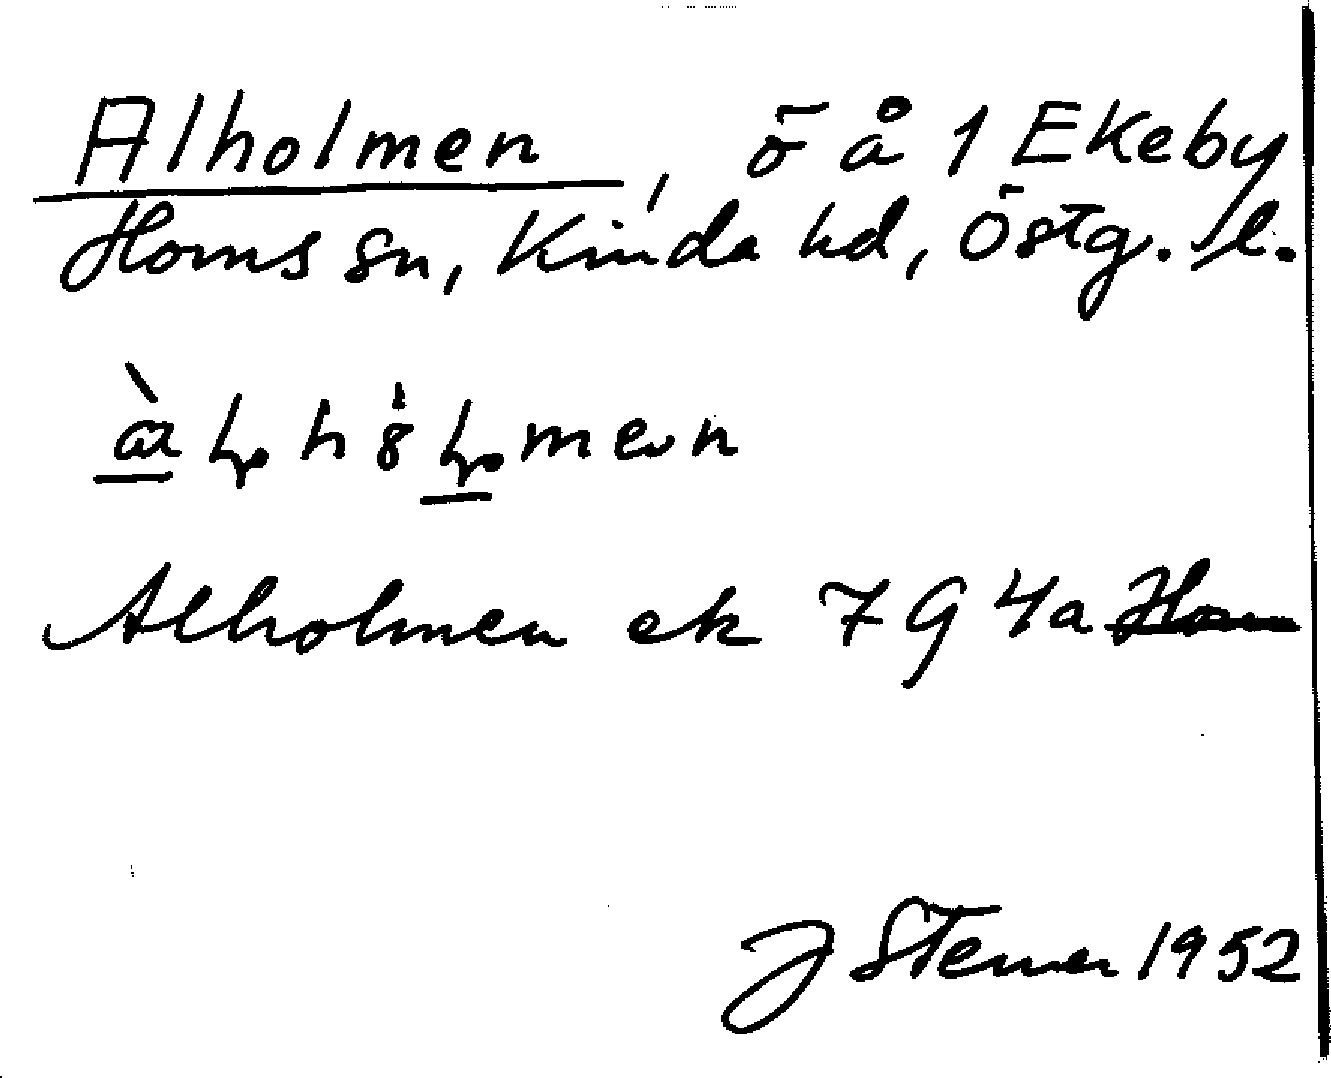 Alholmen, ö å 1 Ekeby
Horns sn, Kinda hd, Östg. l.
Alholmen ek 7 9 4a Horn
J Sterner 1952